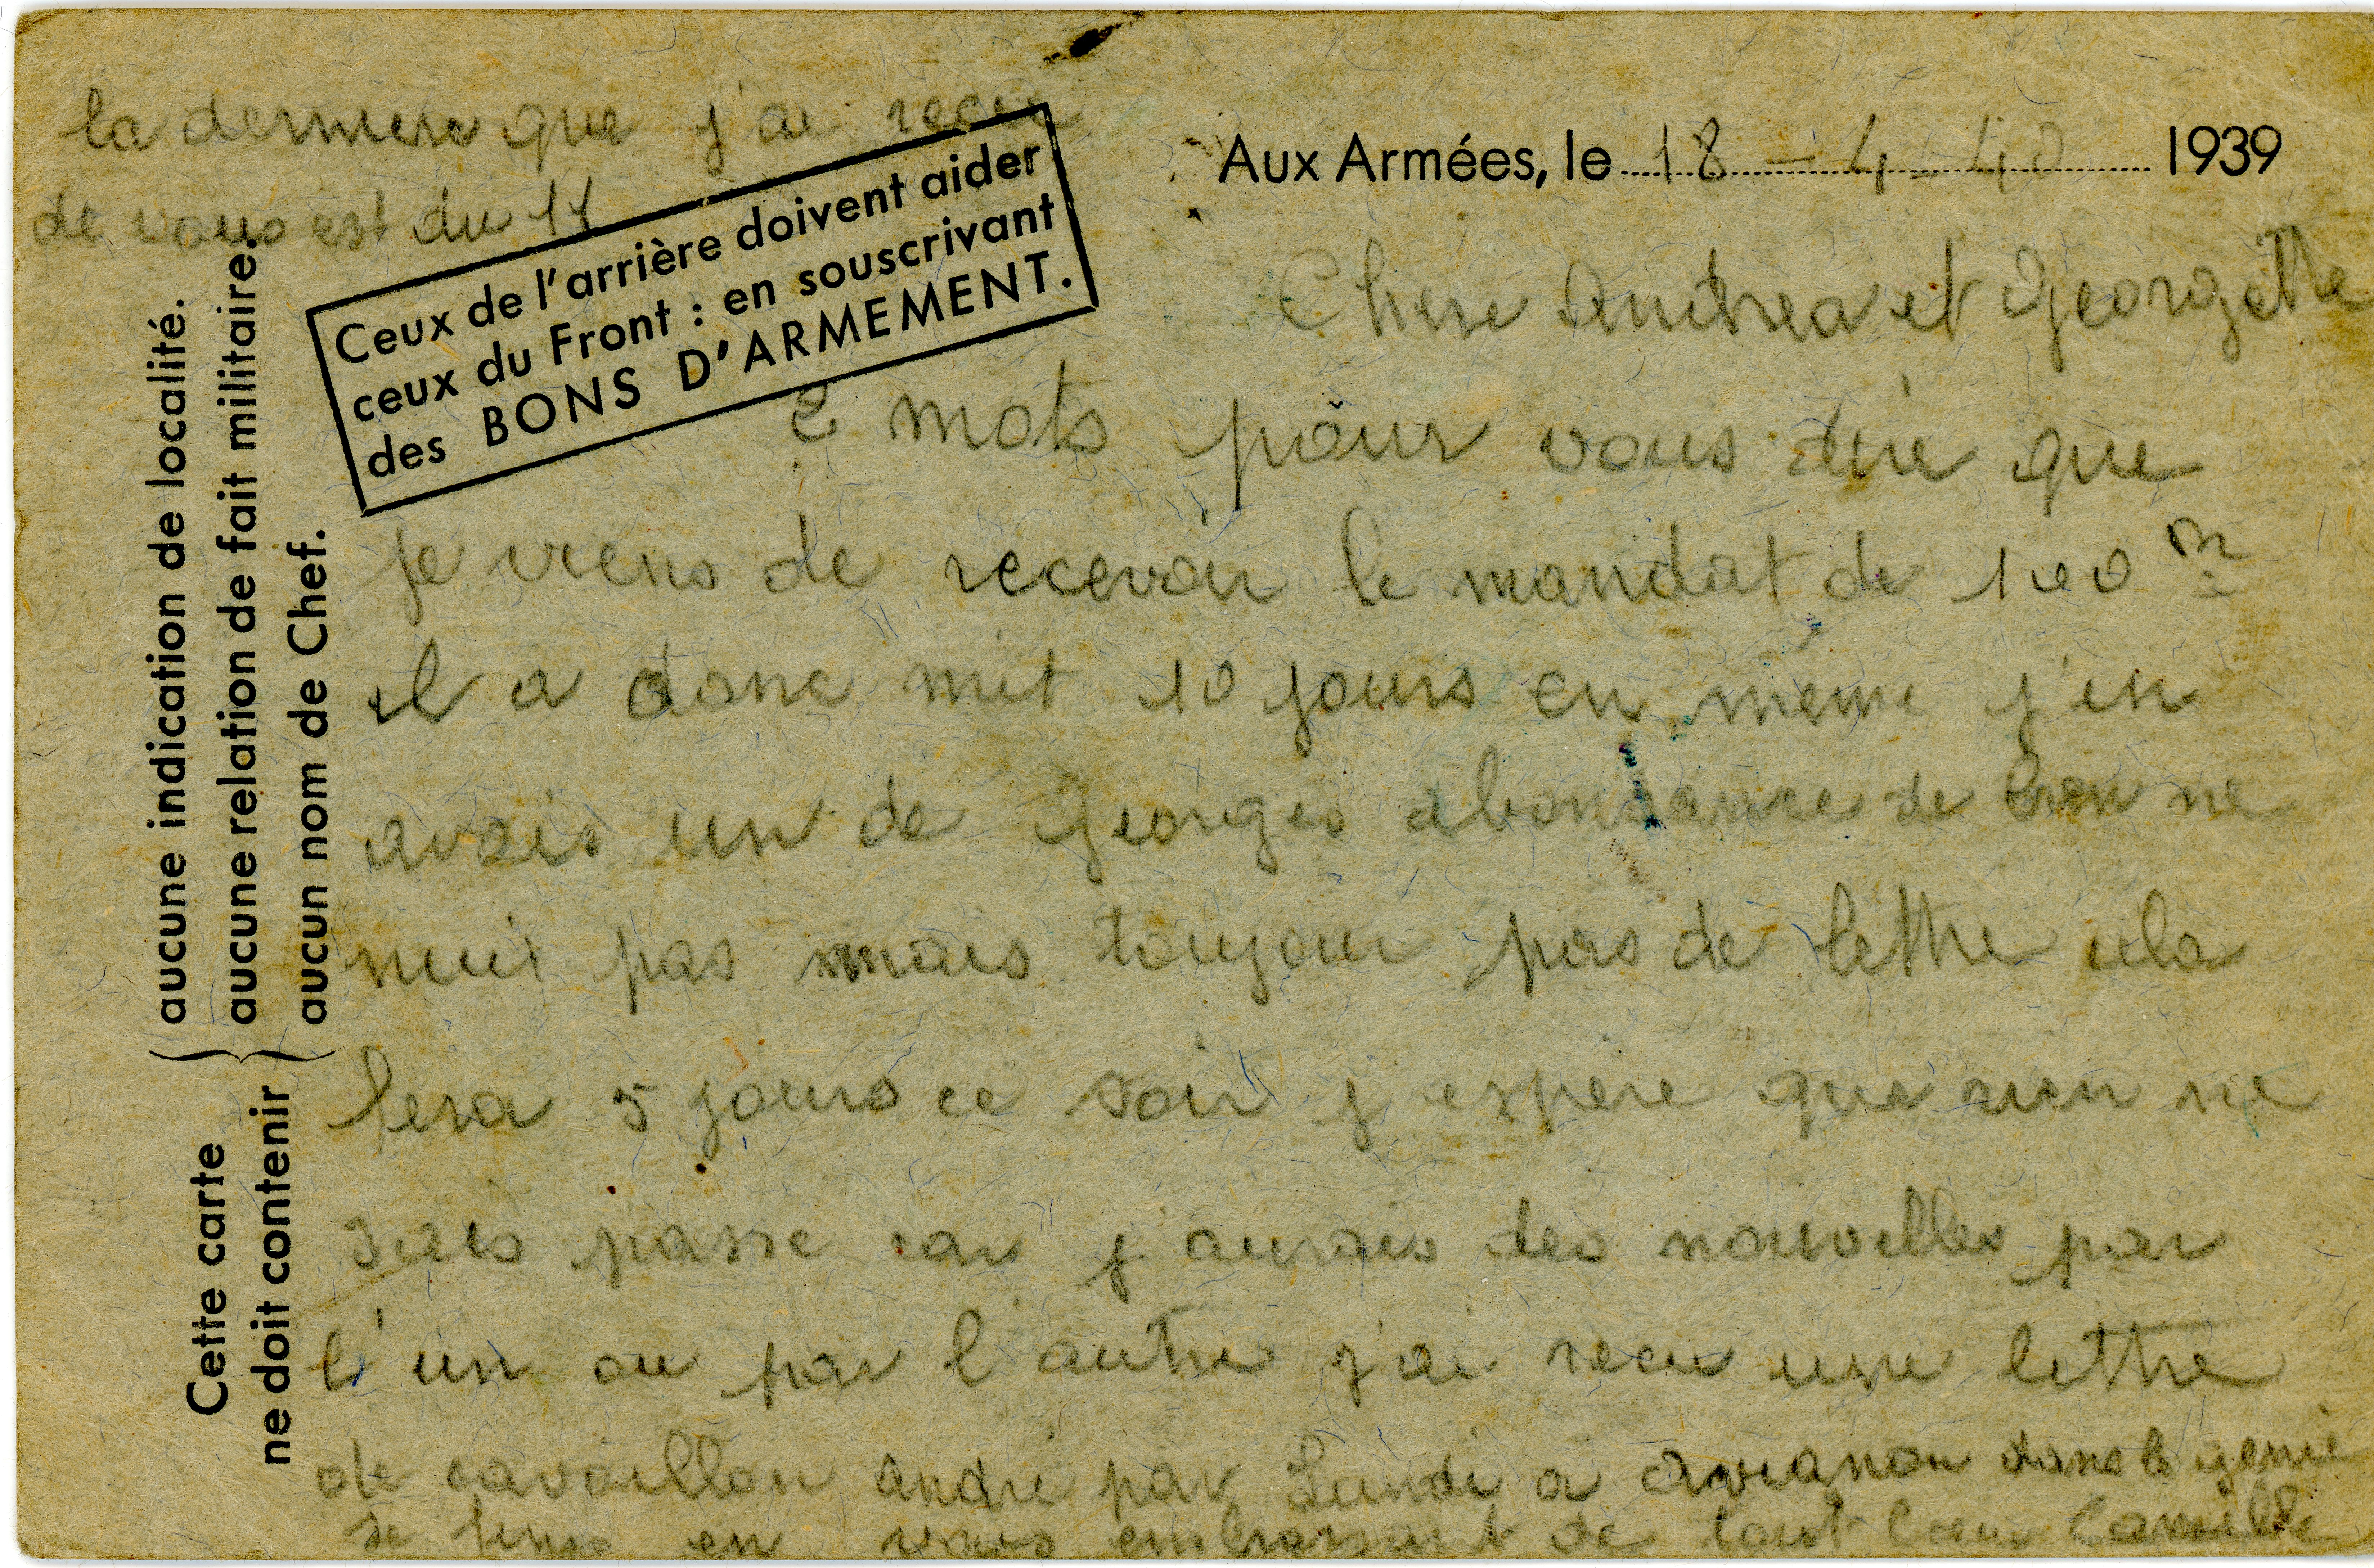 la derniere que j'ai recu
de vous est du 11
Aux Armées, le 18 - 4 - 40 1939
Ceux de l'arrière doivent aider
ceux du Front : en souscrivant
des BONS D'ARMEMENT.
Cette carte
ne doit contenir
aucune indication de localité.
aucune relation de fait militaire.
aucun nom de Chef.
Chere Andrea et Georgette
2 mots pour vous dire que
je viens de recevoir le mandat de 100
il a donc mit 10 jours en meme j'en
avais un de Georges abondance de bien ne
nuit pas mais toujour pas de lettre cela
fera 5 jours ce soir j'espere que rien ne
passe car j'aurais des nouvelles par
l'un ou par l'autre j'ai recu une lettre
de cavaillon andre par Lundi a avignon dans le genie
Je en vous embrassant de tout coeur Camille